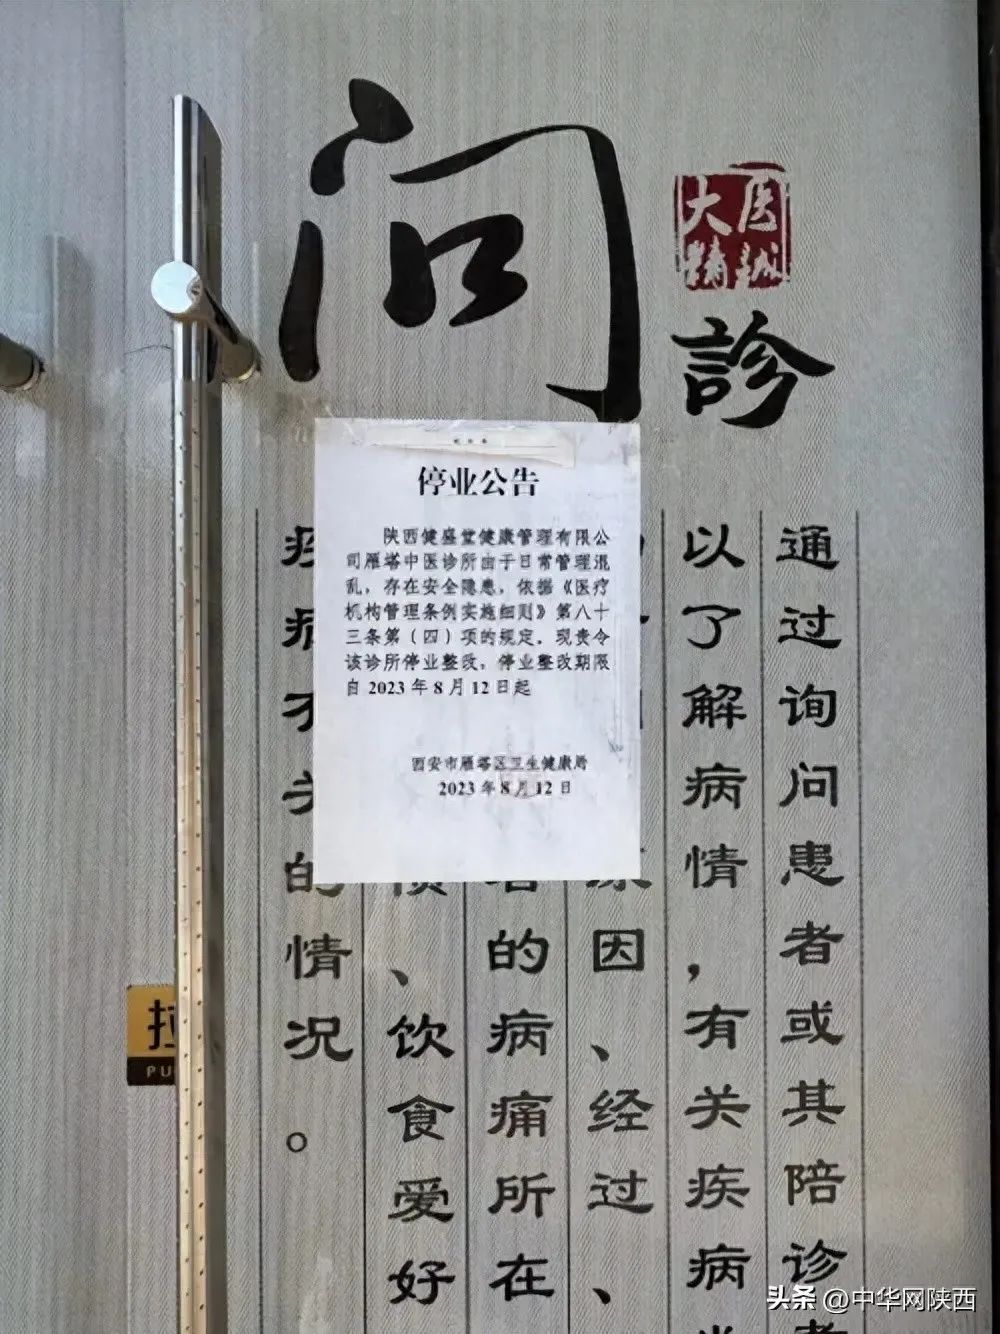 问
大医
精誠
診
停业公告
陕西健盛堂健康管理有限公
司雁塔中医诊所由于日常管理混
乱，存在安全隐患，依据《医疗
机构管理条例实施细则》第八十
三条第（四）项的规定，现责令
该诊所停业整改，停业整改期限
自 2023 年 8 月 12 日起
西安市雁塔区卫生健康局
2023 年 8 月 12 日
通过询问患者或其陪诊者
以了解病情，有关疾病
因、经过、
的病痛所在
、饮食爱好
的情况。
拉
PU
头条 @中华网陕西